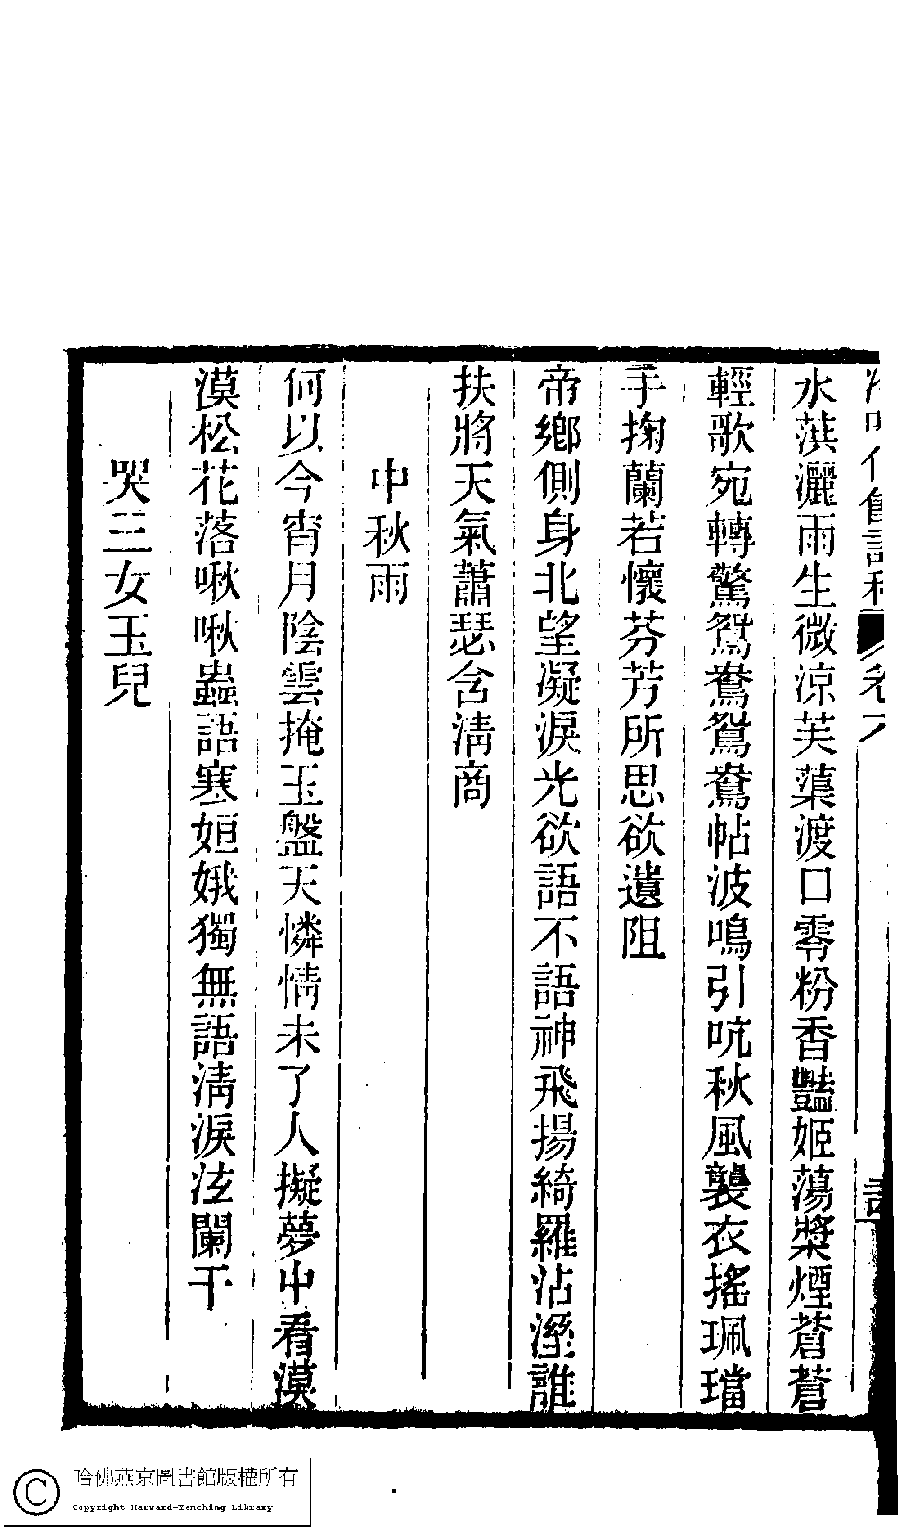 水葓灑雨生微涼芙蕖渡口零粉香豔姬蕩槳煙蒼蒼
輕歌宛轉驚鴛鴦鴛鴦帖波鳴引吭秋風襲衣搖珮璫
手掬蘭若懷芬芳所思欲遺阻
帝鄉側身北望凝淚光欲語不語神飛揚綺羅沾溼誰
扶將天氣蕭瑟含清商
中秋雨
何以今宵月陰雲掩玉盤天憐情未了人擬夢中看漠
漠松花落啾啾蟲語寒姮娥獨無語清淚泫闌干
哭三女玉兒
哈佛燕京圖書館版權所有
Copyright Harvard-Yenching Library